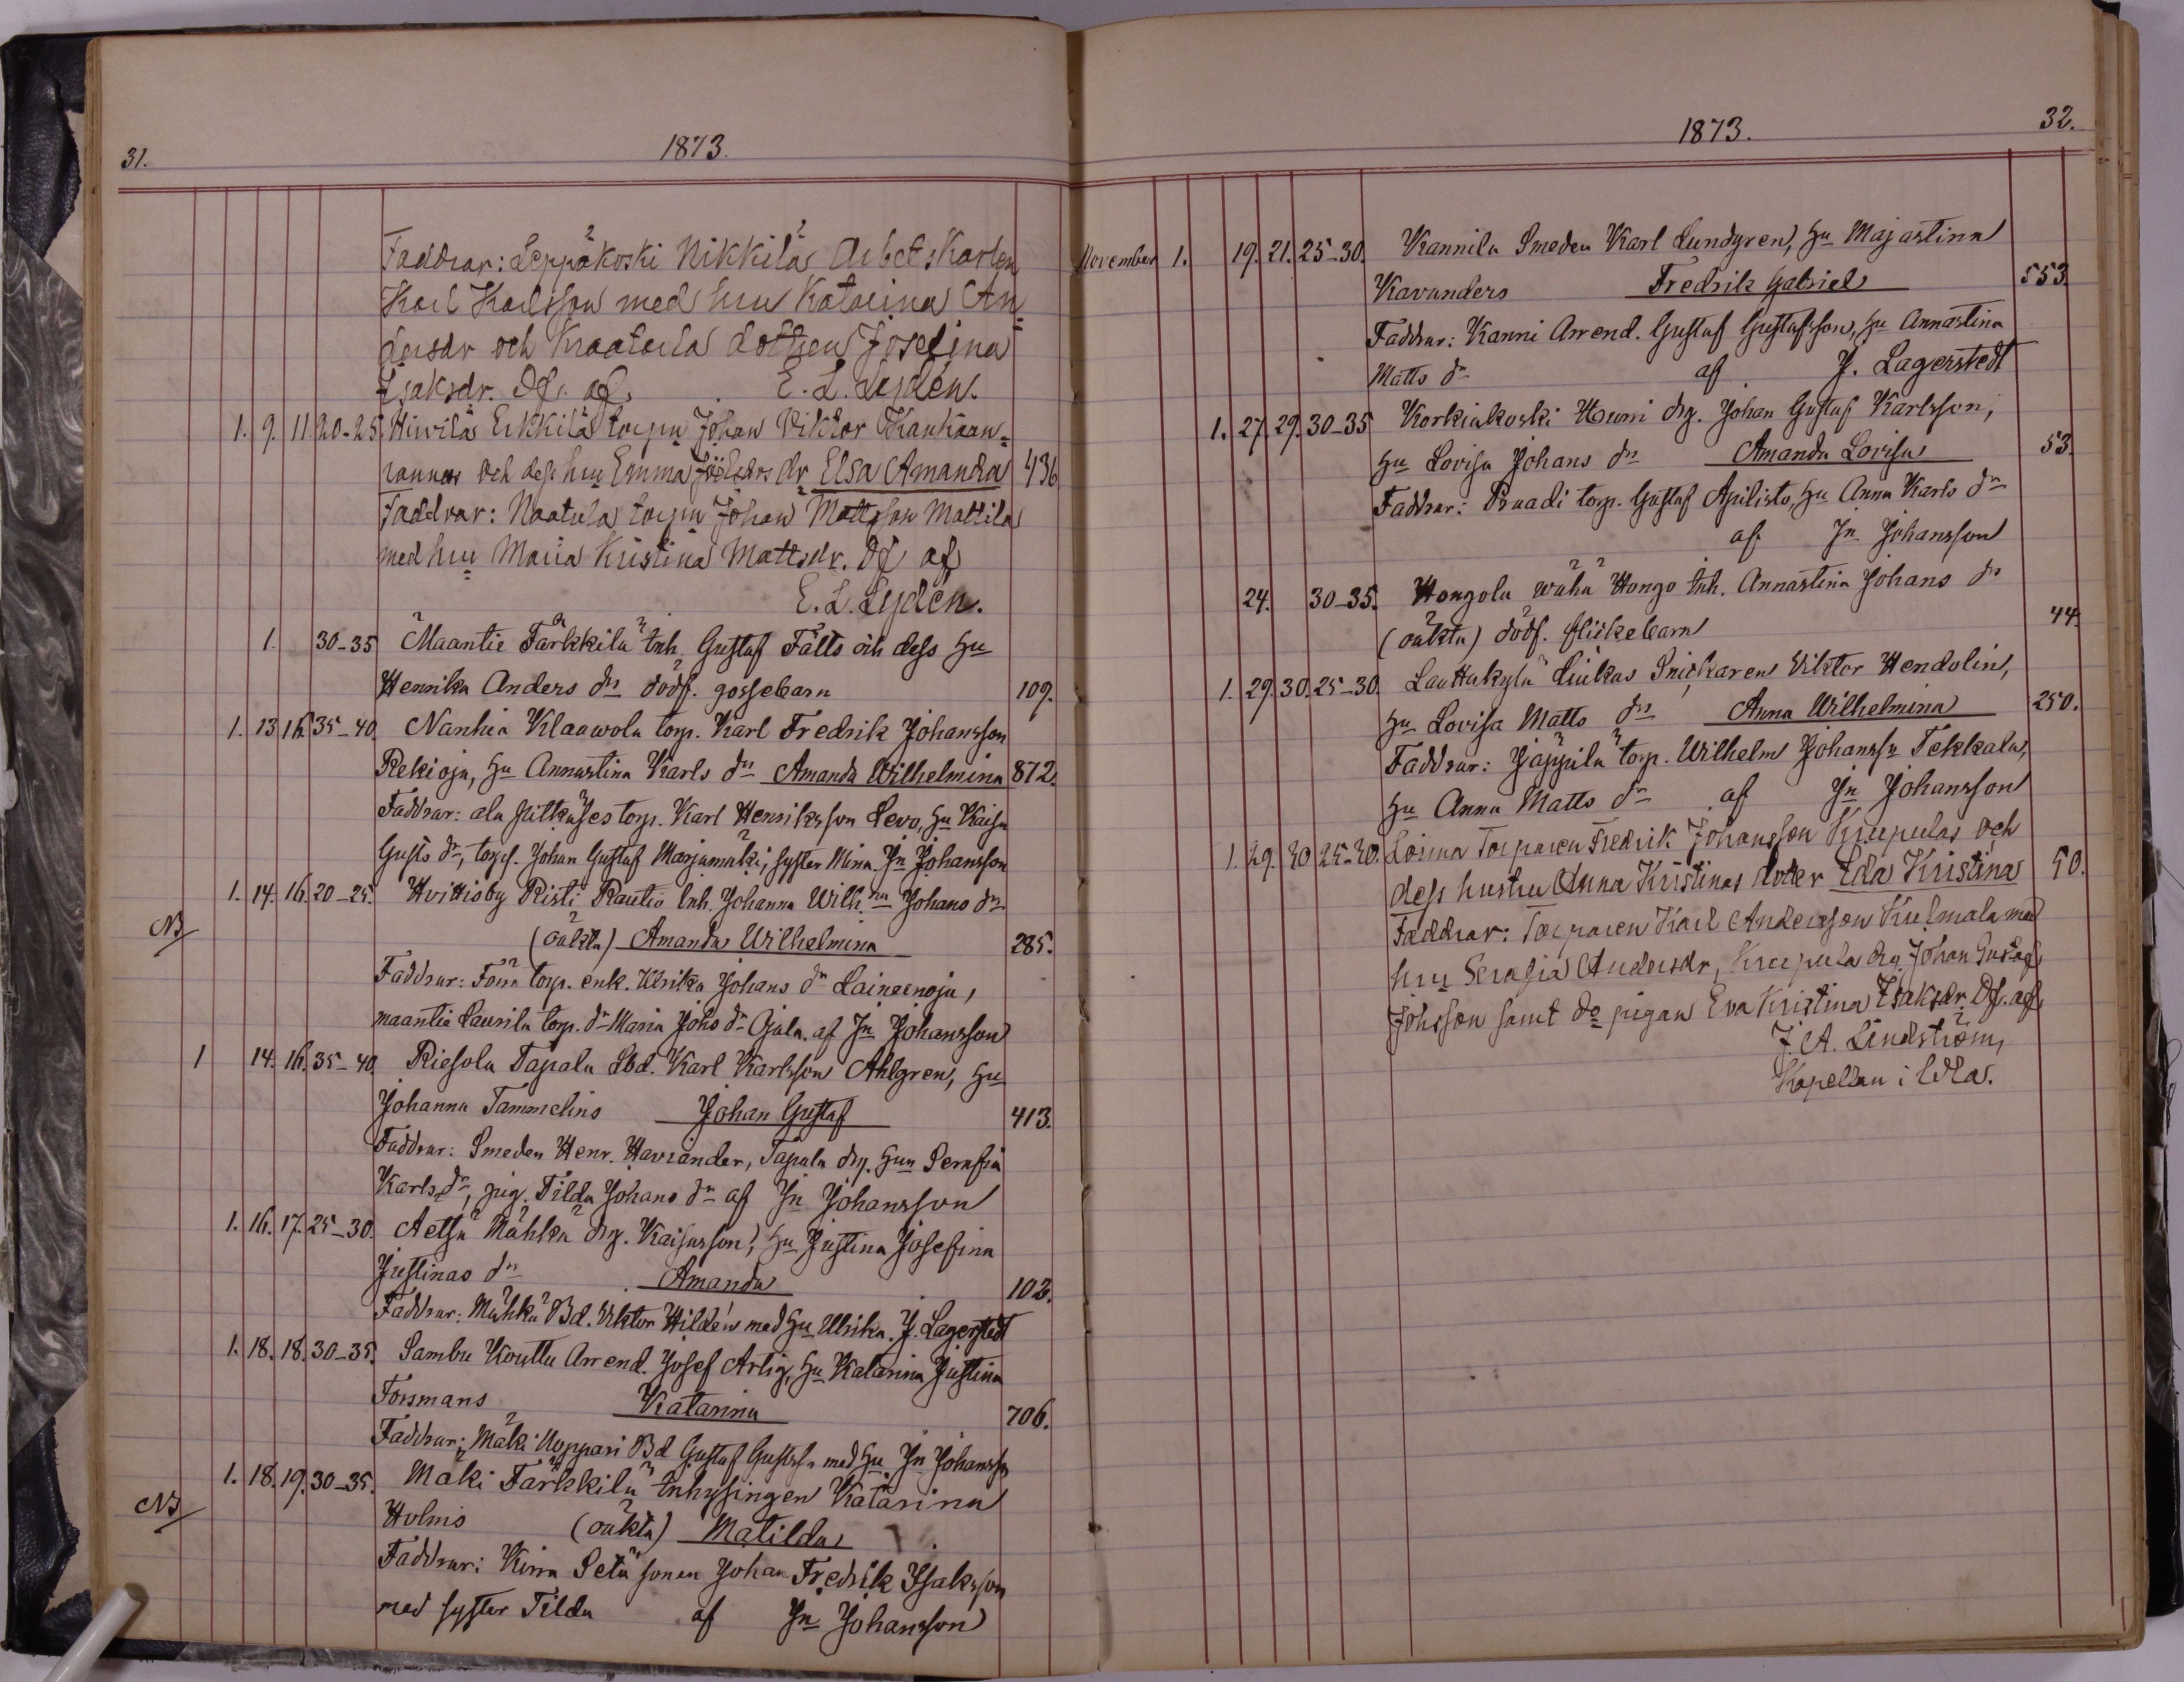 31.
1873.
Faddrar: Leppäkoski Nikkilä Arbetskarlen
Karl Karlsson med hru Katarina An=
dersdr och Kraatarla dottren Josefina
Isaksdr. Df. af. E. L. Lydén.
1. 9. 11. 20-25. Hiivilä Erkkilä torpn Johan Viktor Kankaan=
rannas och dess hru Emma dr Elsa Amanda 436
Faddrar: Naatula torpn Johan Mattsson Mattila
med hru Maria Kristina Mattsdr. Df af
E. L. Lydén.
1. 30-35 Maantie Tärkkilä inh. Gustaf Fälts och dess hu
Henrika Anders dr dödf. gossebarn 109.
1. 13 16. 35-40. Nanhia Klaawola torp. Karl Fredrik Johansson
Rekioja, hu Annastina Karls dr Amanda Wilhelmina 872.
Faddrar: ala Pitkäjes torp. Karl Henriksson Levo, hu Kaisa
Gusts dr, torps. Johan Gustaf Marjamäki, syster Mina. Jn Johansson
1. 14. 16. 20-25. Hvittisby Risti Rautio Inh. Johanna Wilh.na Johans dr
NB
(oäkta) Amanda Wilhelmina 285.
Faddrar: Torp. enk. Ulrika Johans dr Laineenoja,
maantie Laurila torp. dr Maria Johs dr Ojala. af Jn Johansson
1 14. 16. 35-40. Riesola Tapala Lbd. Karl Karlsson Ahlgren, hu
Johanna Tammelins Johan Gustaf 413.
Faddrar: Smeden Henr. Haviander, Tapala drg. hu Serafia
Karls dr, pig. Tilda Johans dr af Jn Johansson
1. 16. 17. 25-30. Aetsä Mähkä drg. Kaisasson, hu Justina Josefina
Justinas dr Amanda 102.
Faddrar: Mähkä Bd. Viktor Hildén med hu Ulrika. J. Lagerstedt
1. 18. 18. 30-35. Sambu Kouttu Arrend. Josef Artig, hu Katarina Justina
Forsmans Katarina 706.
Faddrar: Mäki Uoppari Bd Gustaf Gustafs. med hu Jn Johansson
1. 18. 19. 30-35. Mäki Tärkkilä inhysingen Katarina
NB
Holms (oäkta) Matilda
Faddrar: Kirra Setä sonen Johan Fredrik Isaksson
med syster Tilda af Jn Johansson
1873.
32.
November 1. 19. 21. 25-30. Kannila Smeden Karl Lundgren, hu Majastina
Kavanders Fredrik Gabriel 553.
Faddrar: Kanni Arrend. Gustaf Gustafsson, hu Annastina
Matts dr af J. Lagerstedt
1. 27. 29. 30-35 Korkiakoski Hurri drg. Johan Gustaf Karlsson,
hu Lovisa Johans dr Amanda Lovisa 53.
Faddrar: Raadi torp. Gustaf Apilisto, hu Anna Karls dr
af Jn Johansson
24. 30-35. Hongola wähä Hongo inh. Annastina Johans dr
(oäkta) dödf. flickebarn 44.
1. 29. 30. 25-30. Lauttakylä Liukas Snickaren Viktor Hendolin,
hu Lovisa Matts dr Anna Wilhelmina 250.
Faddrar: Jäppilä torp. Wilhelm Johanss. Tekkala,
hu Anna Matts dr af Jn Johansson
1. 29. 30 25-30. Loima Torparen Fredrik Johansson Kreepulas och
dess hustru Anna Kristinas dotter Eda Kristina 50.
Faddrar: Torparen Karl Andersson Kulmala med
hru Serafia Andersdr, Kreepula drg. Johan Gustaf
Johsson samt do pigan Eva Kristina Isaksdr. Df. af
J. A. Lindström,
Kapellan i Wla.